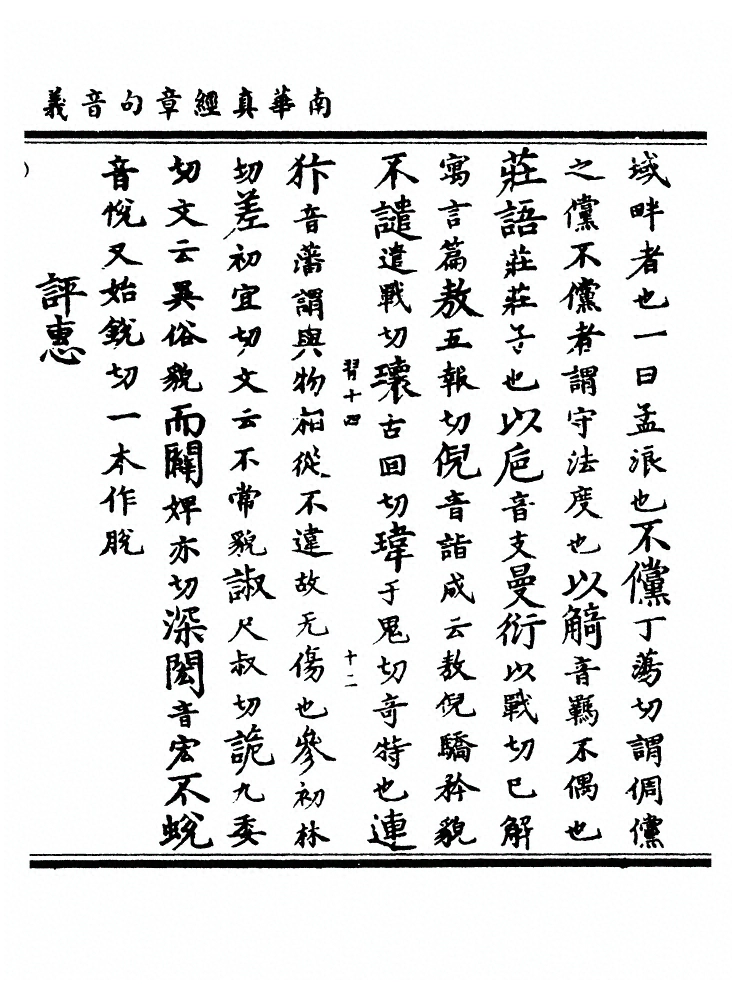 南華真經章句音義
域畔者也一曰孟浪也不儻丁蕩切謂倜儻
之儻不儻者謂守法度也以觭音羈不偶也
莊語莊莊子也以卮音支曼衍以戰切已解
寓言篇敖五報切倪音詣成云敖倪驕矜貌
不譴遣戰切瓌古回切瑋于鬼切奇特也連
習十四
十二
犿音藩謂與物相從不違故无傷也參初林
切差初宜切文云不常貌諔尺叔切詭九委
切文云異俗貌而闢婢亦切深閎音宏不蛻
音悅又始銳切一本作脫
評惠